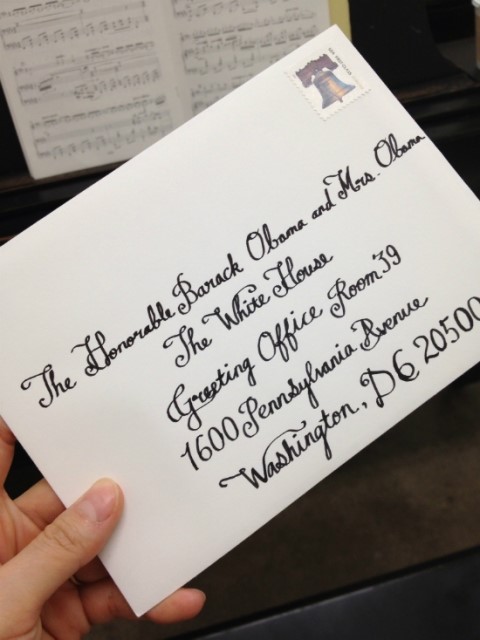 The Honorable Barack Obama and Mrs. Obama
The White House
Greeting Office Room 39
1600 Pennsylvania Avenue
Washington, DC 20500